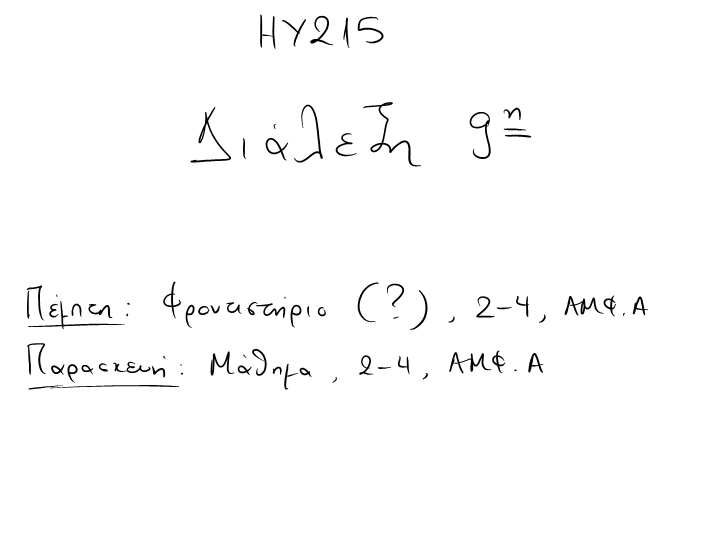 ΗΥ215
Διάλεξη 9η
Πέμπτη: Φροντιστήριο (?), 2-4, ΑΜΦ.Α
Παρασκευή: Μάθημα, 2-4, ΑΜΦ.Α